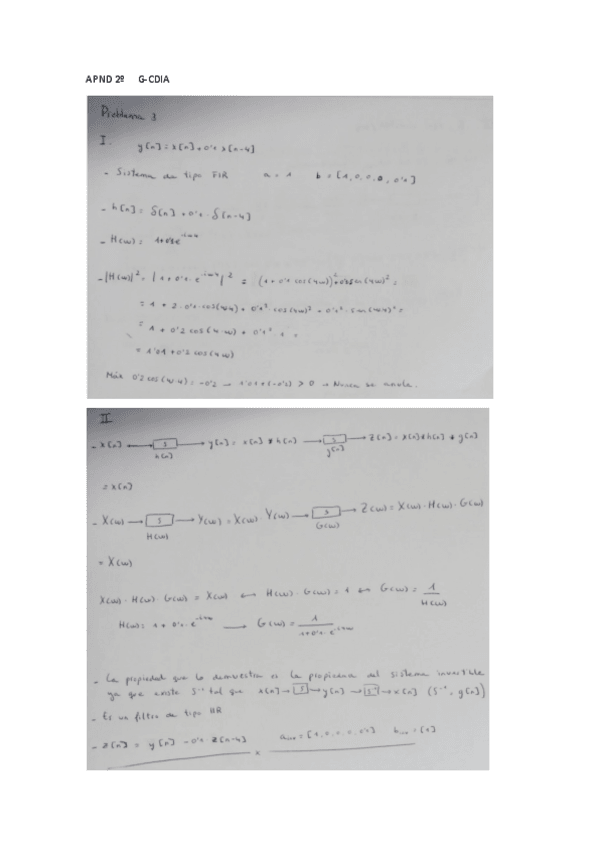 APND 2º G-CDIA
Problema 3
I.
y[n] = x[n] + 0'1 x[n-4]
- Sistema de tipo FIR a = 1 b = [1, 0, 0, 0, 0'1]
- h[n] = δ[n] + 0'1 · δ[n-4]
- H(ω) = 1+0'1e^-i4ω
- |H(ω)|² = |1 + 0'1 · e^-i4ω|² = (1 + 0'1 cos(4ω))² + sen(4ω)² =
= 1 + 2 · 0'1 · cos(4ω) + 0'1² · cos(4ω)² + 0'1² · sen(4ω)² =
= 1 + 0'2 cos(4·ω) + 0'1² · 1 =
= 1'01 + 0'2 cos(4ω)
Máx 0'2 cos(ω·4) = -0'2 → 1'01 + (-0'2) > 0 → Nunca se anula.
II
- x[n] → S → y[n] = x[n] * h[n] → S → z[n] = x[n] * h[n] * g[n]
h[n] g[n]
= x[n]
- X(ω) → S → Y(ω) = X(ω) · Y(ω) → S → Z(ω) = X(ω) · H(ω) · G(ω)
H(ω) G(ω)
= X(ω)
X(ω) · H(ω) · G(ω) = X(ω) ↔ H(ω) · G(ω) = 1 ↔ G(ω) = 1 / H(ω)
H(ω) = 1 + 0'1 · e^-i4ω → G(ω) = 1 / 1+0'1 · e^-i4ω
- La propiedad que lo demuestra es la del sistema invertible
ya que existe S⁻¹ tal que x[n] → S → y[n] → S⁻¹ → x[n] (S⁻¹, g[n])
- Es un filtro de tipo IIR
- z[n] = y[n] - 0'1 · z[n-4] a = [1, 0, 0, 0, 0'1] b = [1]
x